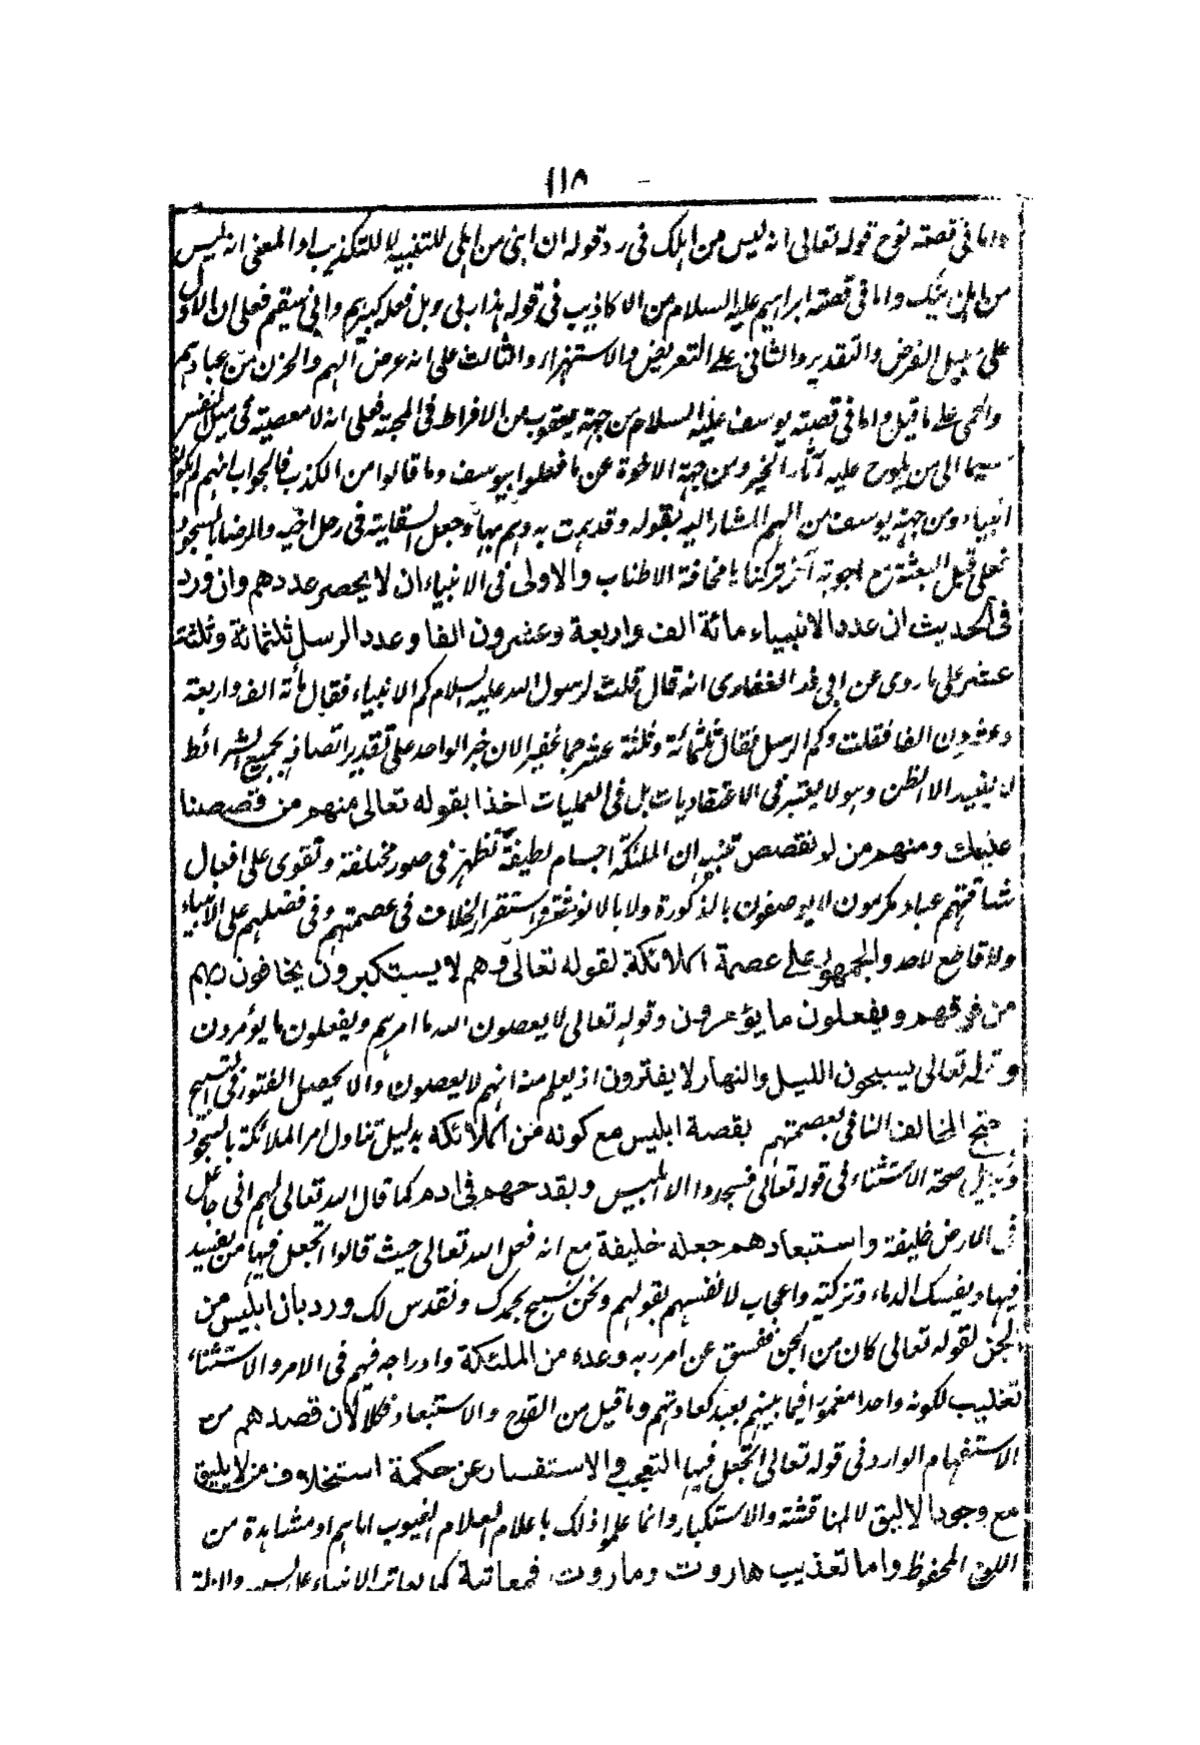 ١١٨ -
واما فى قصته نوح قوله تعالى انه ليس من اهلك فى رد قوله ان ابنى من اهلى للتنبيه لا للتكذيب اوالمعنى انه ليس
من اهل واما فى قصته ابراهيم عليه السلام من الاكاذيب فى قوله هذا ربى وبل فعله كبيرهم وانى سقيم فعلى ان الاول
على سبيل الفرض والتقدير والثانى على التعريض والاستهزاء والثالث على انه عرض الهم والحزن من عبادتهم
والحمى على ما قيل واما فى قصته يوسف عليه السلام من جهته يعقوب من الافراط فى المحبته فعلى انه لا معصيته فى ميل النفس
سيما الى من يلوح عليه آثار الخير ومن جهته الاخوة عن ما فعلوا بيوسف وما قالوا من الكذب فالجواب انهم لم يكونوا
انبياء ومن جهته يوسف من الهم المشار اليه بقوله وقد همت به وهم بها وجعل السقايته فى رحل اخيه والرضا بالسجود
فعلى قبل البعثة مع اجوبته آخر تركنا ها مخافة الاطناب والاولى فى الانبياء ان لا يحصر عددهم وان ورد
فى الحديث ان عدد الانبياء مائة الف واربعة وعشرون الفا وعدد الرسل ثلثمائة وثلثة
عشر على ما روى عن ابى ذر الغفارى انه قال قلت لرسول الله عليه السلام كم الانبياء فقال مأته الف واربعة
وعشرون الفا فقلت وكم الرسل فقال ثلثمائة وثلثة عشر جما غفيرا لان خبر الواحد على تقدير اتصافه بجميع الشرائط
لا يفيد الا الظن وهو لا يعتبر فى الاعتقاديات بل فى العمليات اخذا بقوله تعالى منهم من قصصنا
عليك ومنهم من لم نقصص تنبيه ان الملئكة اجسام لطيفة تظهر فى صور مختلفة وتقوى على افعال
شاقتهم عباد مكرمون لا يوصفون بالذكورة ولا بالانوثة واستقر الخلاف فى عصمتهم وفى فضلهم على الانبياء
ولا قاطع لاحد والجمهور على عصمة الملائكة لقوله تعالى وهم لا يستكبرون يخافون ربهم
من فوقهم ويفعلون ما يؤمرون وقوله تعالى لا يعصون الله ما امرهم ويفعلون ما يؤمرون
وقوله تعالى يسبحون الليل والنهار لا يفترون اذ يعلم منه انهم لا يعصون والا يحصل الفتور فى التسبيح
احتج المخالف النافى بعصمتهم بقصة ابليس مع كونه من الملائكة بدليل تناول امر الملائكة بالسجود
وبدليل صحة الاستثناء فى قوله تعالى فسجدوا الا ابليس وبقدحهم فى ادم كما قال الله تعالى لهم انى جاعل
فى الارض خليفة واستبعادهم جعله خليفة مع انه فعل الله تعالى حيث قالوا اتجعل فيها من يفسد
فيها ويفسك الدماء وتزكيته واعجاب لانفسهم بقولهم ونحن نسبح بحمدك ونقدس لك ورد بان ابليس من
الجن لقوله تعالى كان من الجن ففسق عن امر ربه وعده من الملئكة وادراجه فيهم فى الامر والاستثناء
تغليب لكونه واحدا مغمورا فيما بينهم يعبد كعادتهم وما قيل من القدح والاستبعاد فكلا لان قصدهم من
الاستفهام الوارد فى قوله تعالى اتجعل فيها التعجب والاستفسار عن حكمة استخلاف من لا يليق
مع وجود الاليق لا المناقشة والاستكبار وانما علموا ذلك باعلام العلام الغيوب اياهم او مشاهدة من
اللوح المحفوظ واما تعذيب هاروت وماروت فمعاتبة كما يعاتب الانبياء على السهو والزلة